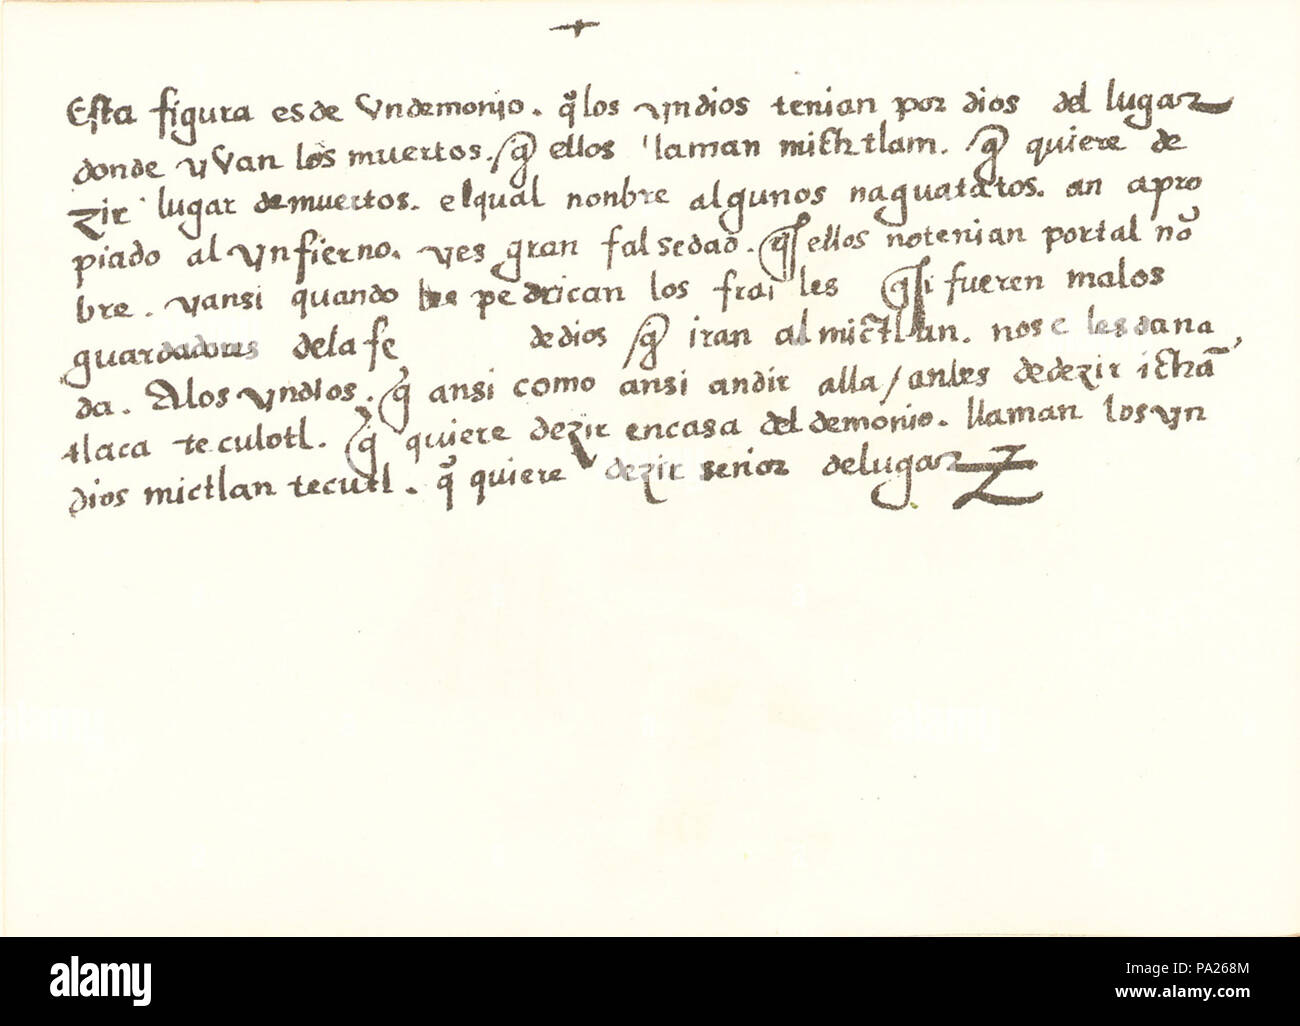 Esta figura es de vn demonio. q̃ los yndios tenian por dios del lugar
donde yvan los muertos. q̃ ellos llaman michtlam. q̃ quiere de
zir lugar de muertos. el qual nonbre algunos naguatatos. an apro
piado al ynfierno. yes gran falsedad. q̃ ellos notenian portal nõ
bre. yansi quando les pedrican los frailes q̃ si fueren malos
guardadores dela fe de dios q̃ iran al mictlan. nose les dana
da. Alos yndios. q̃ ansi como ansi andir alla / antes dedezir ichã
tlaca teculotl. q̃ quiere dezir encasa del demonio. llaman los yn
dios mictlan tecutl. q̃ quiere dezir senior delugar
alamy
Image ID: PA268M
www.alamy.com